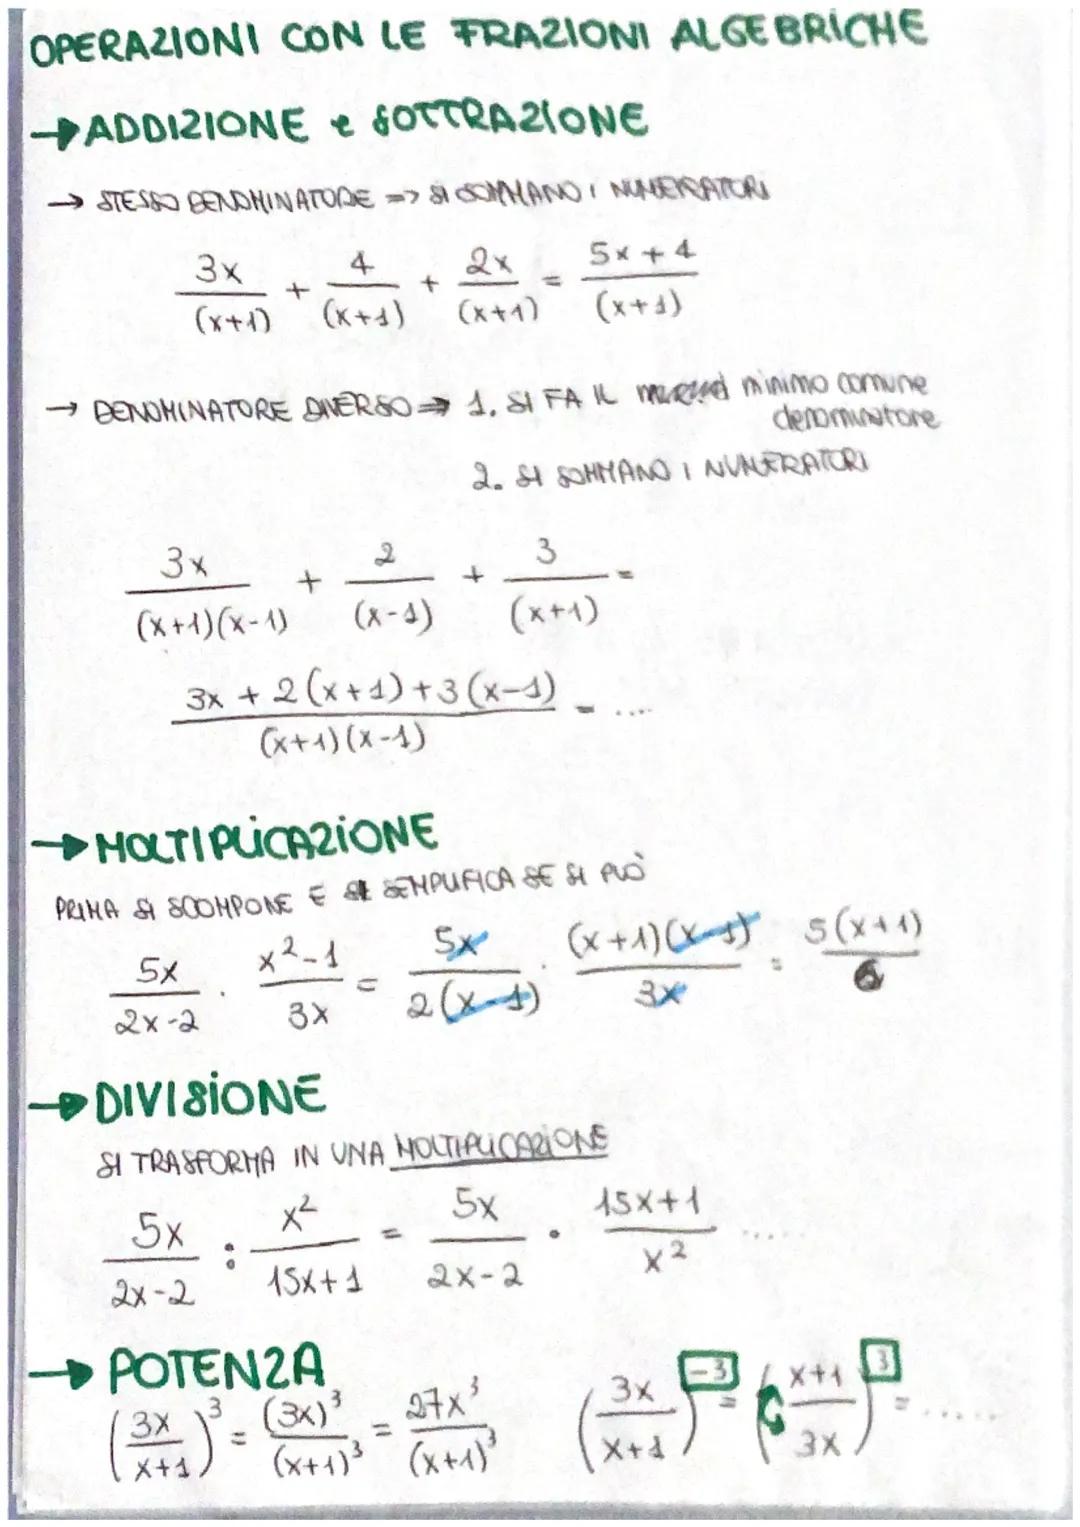 OPERAZIONI CON LE FRAZIONI ALGEBRICHE
→ ADDIZIONE e SOTTRAZIONE
→ STESSO DENOMINATORE => SI SOMMANO I NUMERATORI
3x/(x+1) + 4/(x+1) + 2x/(x+1) = 5x+4/(x+1)
→ DENOMINATORE DIVERSO => 1. SI FA IL minimo comune
denominatore
2. SI SOMMANO I NUMERATORI
3x/(x+1)(x-1) + 2/(x-1) + 3/(x+1) =
3x + 2(x+1) + 3(x-1)/(x+1)(x-1) = ....
→ MOLTIPLICAZIONE
PRIMA SI SCOMPONE E SI SEMPLIFICA SE SI PUÒ
5x/2x-2 · x²-1/3x = 5x/2(x-1) · (x+1)(x-1)/3x = 5(x+1)/6
→ DIVISIONE
SI TRASFORMA IN UNA MOLTIPLICAZIONE
5x/2x-2 : x²/15x+1 = 5x/2x-2 · 15x+1/x² .....
→ POTENZA
(3x/x+1)³ = (3x)³/(x+1)³ = 27x³/(x+1)³ (3x/x+1)⁻³ = (x+1/3x)³ = .....